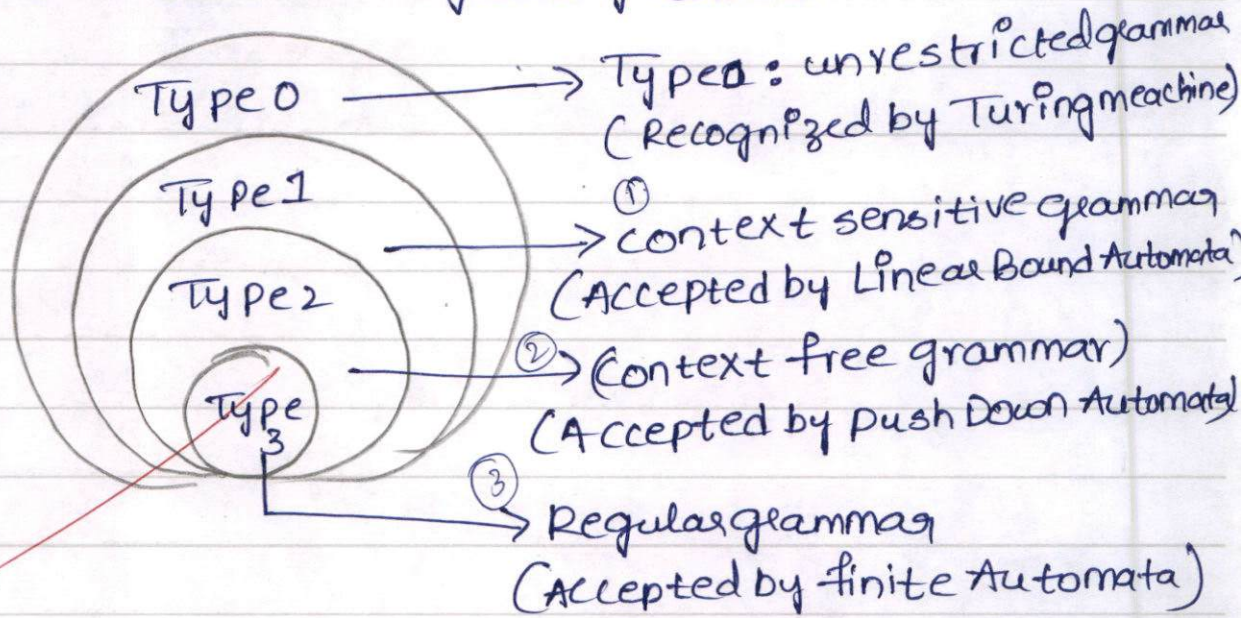 Type 0
Type 0: unrestricted grammar
(Recognized by Turing meachine)
Type 1
①
context sensitive grammar
(Accepted by Linear Bound Automata)
Type 2
②
(Context free grammar)
(Accepted by push Down Automata)
Type
3
③
Regular grammar
(Accepted by finite Automata)